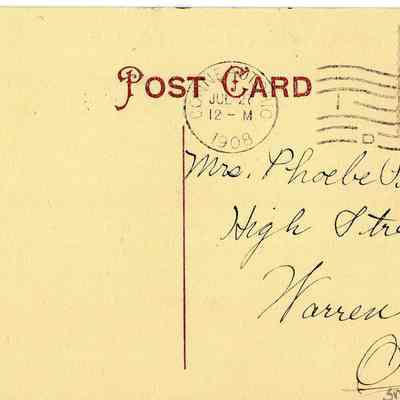 POST CARD
JUL 27
12 - M
1908
Mrs. Phoebe
High Stre
Warren
O